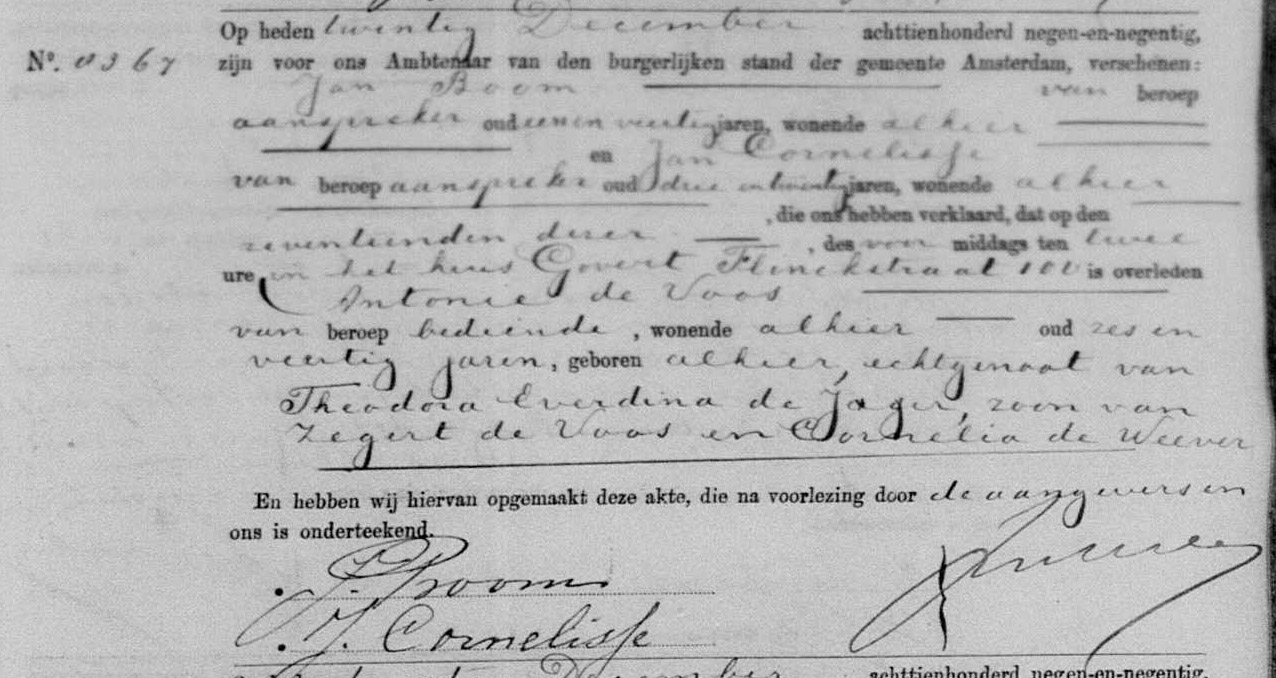 Op heden twintig December achttienhonderd negen-en-negentig,
N°. 9367 zijn voor ons Ambtenaar van den burgerlijken stand der gemeente Amsterdam, verschenen:
Jan Boom van beroep
aanspreker oud een en veertig jaren, wonende alhier
en Jan Cornelisse
van beroep aanspreker oud drie en twintig jaren, wonende alhier
, die ons hebben verklaard, dat op den
zeventienden dezer , des voor middags ten twee
ure, in het huis Govert Flinckstraat 100 is overleden
Antonie de Voos
van beroep bediende, wonende alhier oud zes en
veertig jaren, geboren alhier, echtgenoot van
Theodora Everdina de Jager, zoon van
Zegert de Voos en Cornelia de Weever
En hebben wij hiervan opgemaakt deze akte, die na voorlezing door de aangevers en
ons is onderteekend.
J. Boom
J. Cornelisse
December achttienhonderd negen-en-negentig,